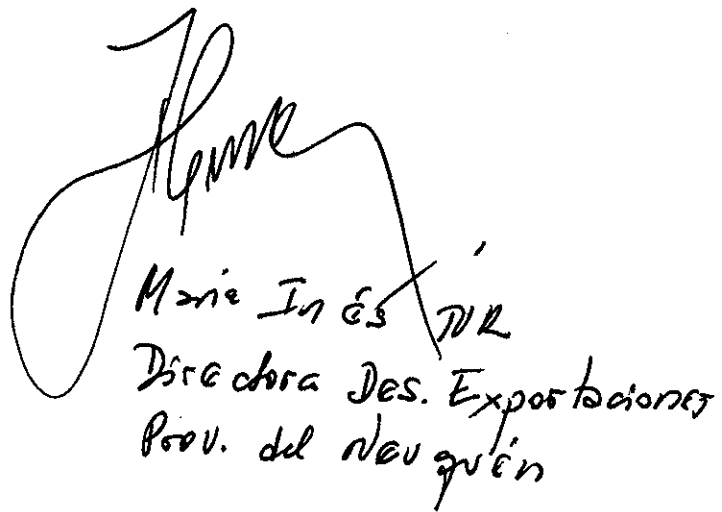 Maria Inés TUR
Directora Des. Exportaciones
Prov. del Neuquén